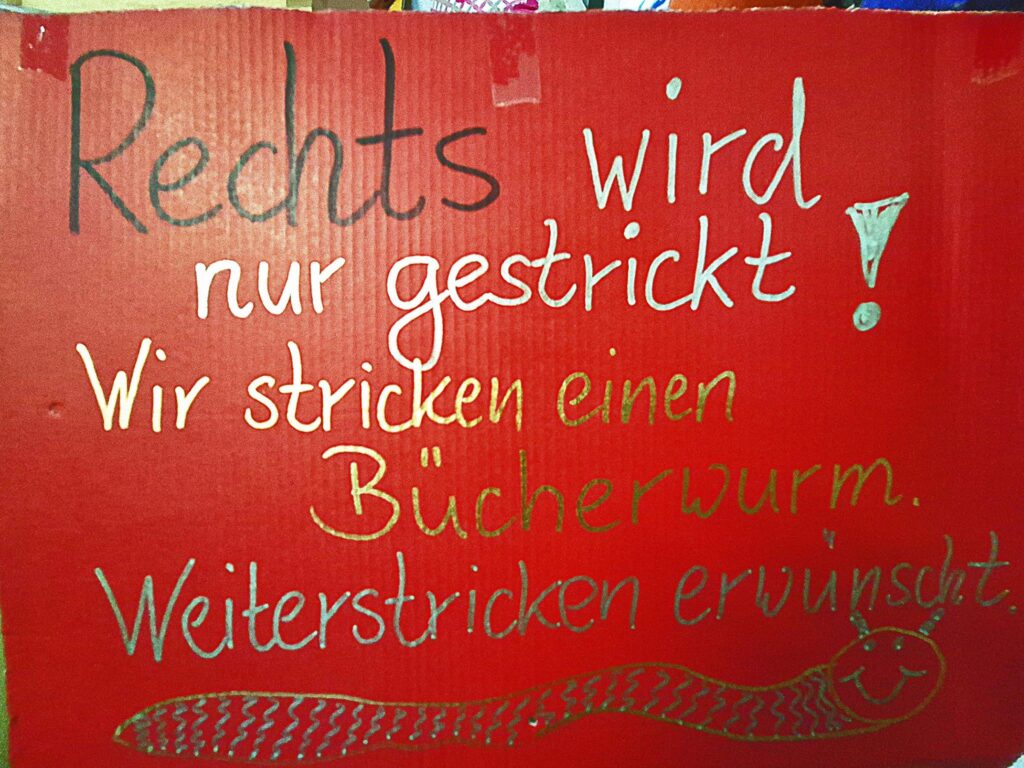 Rechts wird
nur gestrickt!
Wir stricken einen
Bücherwurm.
Weiterstricken erwünscht.